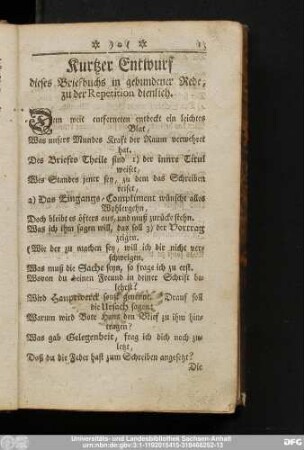 13
Kurtzer Entwurf
dieses Briefbuchs in gebundener Rede,
zu der Repetition dienlich.
Dem weit entferneten entdeckt ein leichtes
Blat,
Was unsers Mundes Kraft der Raum verwehret
hat.
Des Briefes Theile sind 1) der innre Titul
weiset,
Wes Standes jener sey, zu dem das Schreiben
reiset,
2) Das Eingangs-Compliment wünscht alles
Wohlergehn,
Doch bleibt es öfters aus, und muß zurücke stehn.
Was ich ihm sagen will, das soll 3) der Vortrag
zeigen.
(Wie der zu machen sey, will ich dir nicht ver-
schweigen.
Was muß die Sache seyn, so frage ich zu erst.
Wovon du deinen Freund in deiner Schrift be-
lehrst?
Wird Hauptwerck sonst genennt. Drauf soll
die Ursach sagen:
Warum wird Bote Hans den Brief zu ihm hin-
tragen?
Was gab Gelegenheit, frag ich dich noch zu-
letzt,
Daß du die Feder hast zum Schreiben angesetzt?
Die
Universitäts- und Landesbibliothek Sachsen-Anhalt
urn:nbn:de:gbv:3:1-1192015415-318466252-13
DFG